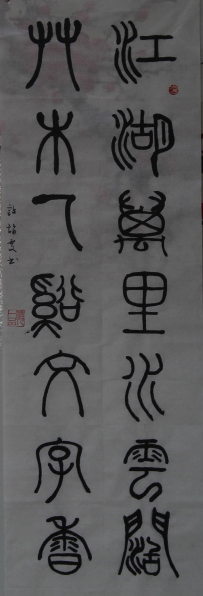 江湖萬里水雲闊
艸木一谿文字香